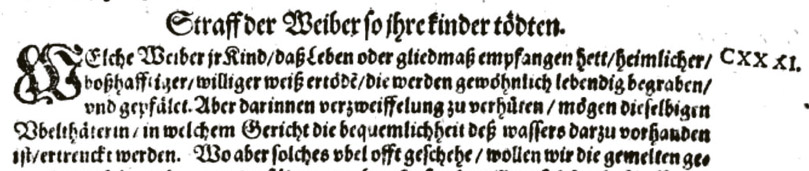 Straff der Weiber so jhre kinder tödten.
WElche Weiber jr Kind/daß Leben oder gliedmaß empfangen hett/heimlicher/ CXXXI.
boßhafftiger/williger weiß ertödẽ/die werden gewöhnlich lebendig begraben/
vnd gepfälet. Aber darinnen verzweiffelung zu verhüten/mögen dieselbigen
Vbelthäterin/in welchem Gericht die bequemlichheit deß wassers darzu vorhanden
ist/ertrenckt werden. Wo aber solches vbel offt geschehe/wollen wir die gemelten ge⸗